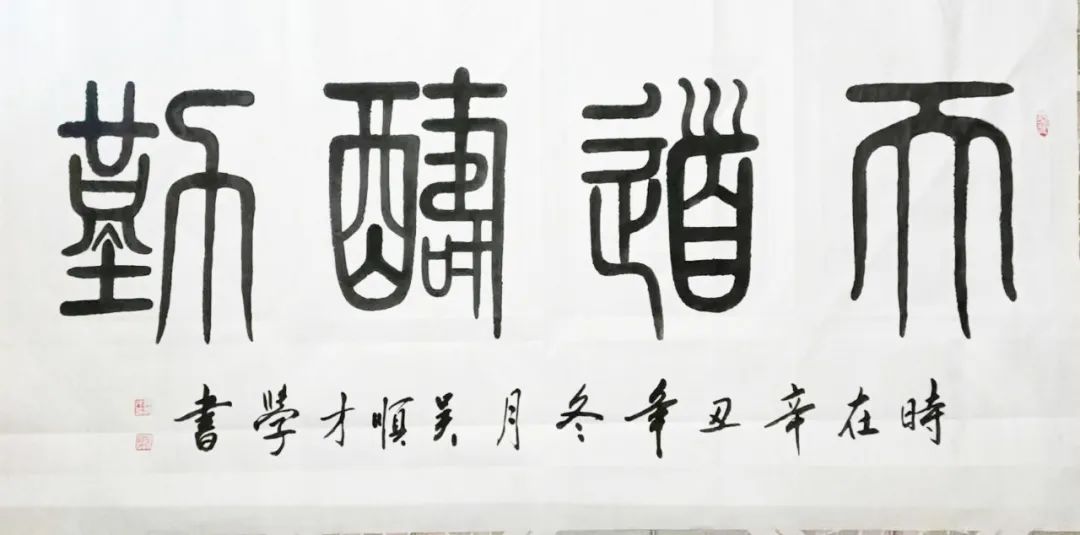 天道酬勤
時在辛丑年冬月吴順才學書